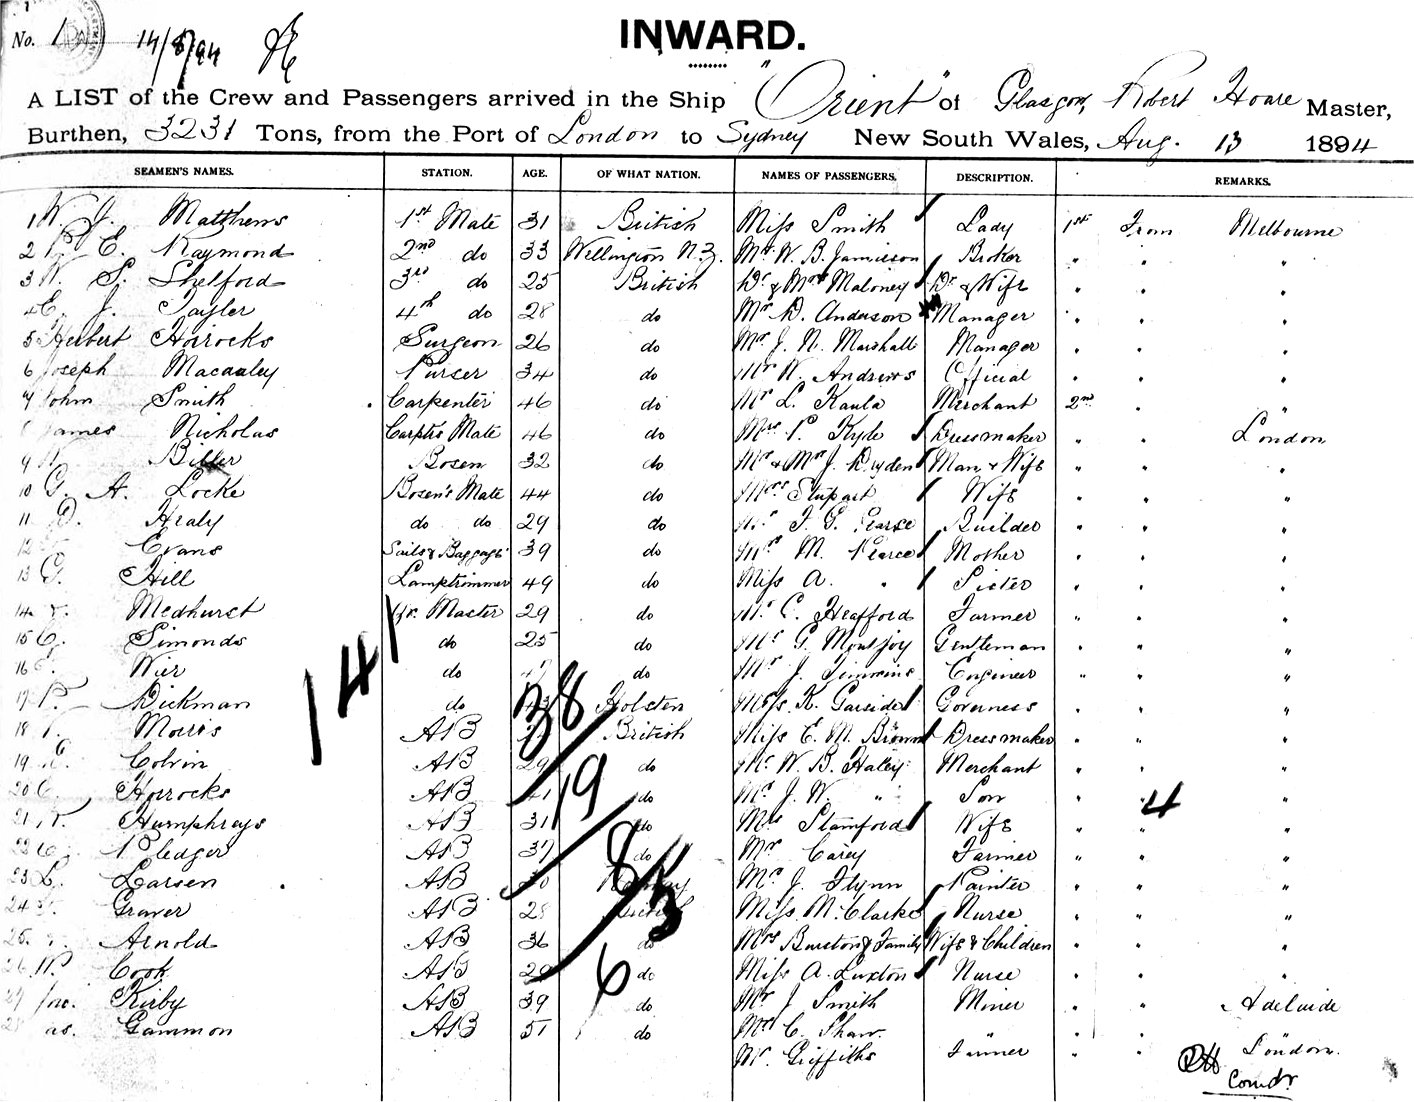 INWARD.
No. 1 14/8/94
A LIST of the Crew and Passengers arrived in the Ship "Orient" of Glasgow, Robert Hoare Master,
Burthen, 3231 Tons, from the Port of London to Sydney New South Wales, Aug. 13 1894
SEAMEN'S NAMES. STATION. AGE. OF WHAT NATION. NAMES OF PASSENGERS. DESCRIPTION. REMARKS.
1 W. J. Matthews 1st Mate 31 British Miss Smith Lady 1st From Melbourne
2 P. E. Raymond 2nd do 33 Wellington N.Z. Mr W. B. Jamieson Broker " " "
3 W. S. Shelford 3rd do 25 British Dr & Mrs Maloney Dr & Wife " " "
4 C. J. Tayler 4th do 28 do Mr D. Anderson Manager " " "
5 Herbert Horrocks Surgeon 26 do Mr J. N. Marshall Manager " " "
6 Joseph Macauley Purser 34 do Mr W. Andrews Official " " "
7 John Smith Carpenter 46 do Mr L. Kaula Merchant 2nd " "
8 James Nicholas Carptrs Mate 46 do Mrs P. Kyde Dressmaker " " London
9 Biller Bosen 32 do Mr & Mrs J. Dryden Man & Wife " " "
10 G. A. Locke Bosen's Mate 44 do Mrs Stupart Wife " " "
11 D. Healy do do 29 do Mr F. G. Pearse Builder " " "
12 Evans Sails & Baggage 39 do Mrs M. Pearce Mother " " "
13 G. Hill Lamptrimmer 49 do Miss A. " Sister " " "
14 Medhurst Qr. Master 29 do Mr C. Heafford Farmer " " "
15 C. Simonds do 25 do Mr G. Montjoy Gentleman " " "
16 Wier do 47 do Mr J. Timmins Engineer " " "
17 P. Dickman do Holsten Miss K. Garside Governess " " "
18 Morris AB British Miss E. M. Brown Dressmaker " " "
19 Colvin AB 29 do Mr W. B. Haley Merchant " " "
20 C. Horrocks AB 41 do Mr J. W. " Son " " "
21 Humphreys AB 31 do Mrs Stamford Wife " " "
22 C. Pledger AB 37 do Mr Carey Farmer " " "
23 L. Larsen AB 30 Norway Mr J. Flynn Painter " " "
24 Graver AB 28 British Miss M. Clarke Nurse " " "
25 Arnold AB 36 do Mrs Burston & Family Wife & Children " " "
26 W. Cook AB 29 do Miss A. Luxton Nurse " " "
27 Jno. Kirby AB 39 do Mr J. Smith Miner " " Adelaide
28 Jas. Gammon AB 51 do Mr C. Shaw "
Mr Griffiths Farmer " " London
141
38
19
8
3
6
4
Comdr